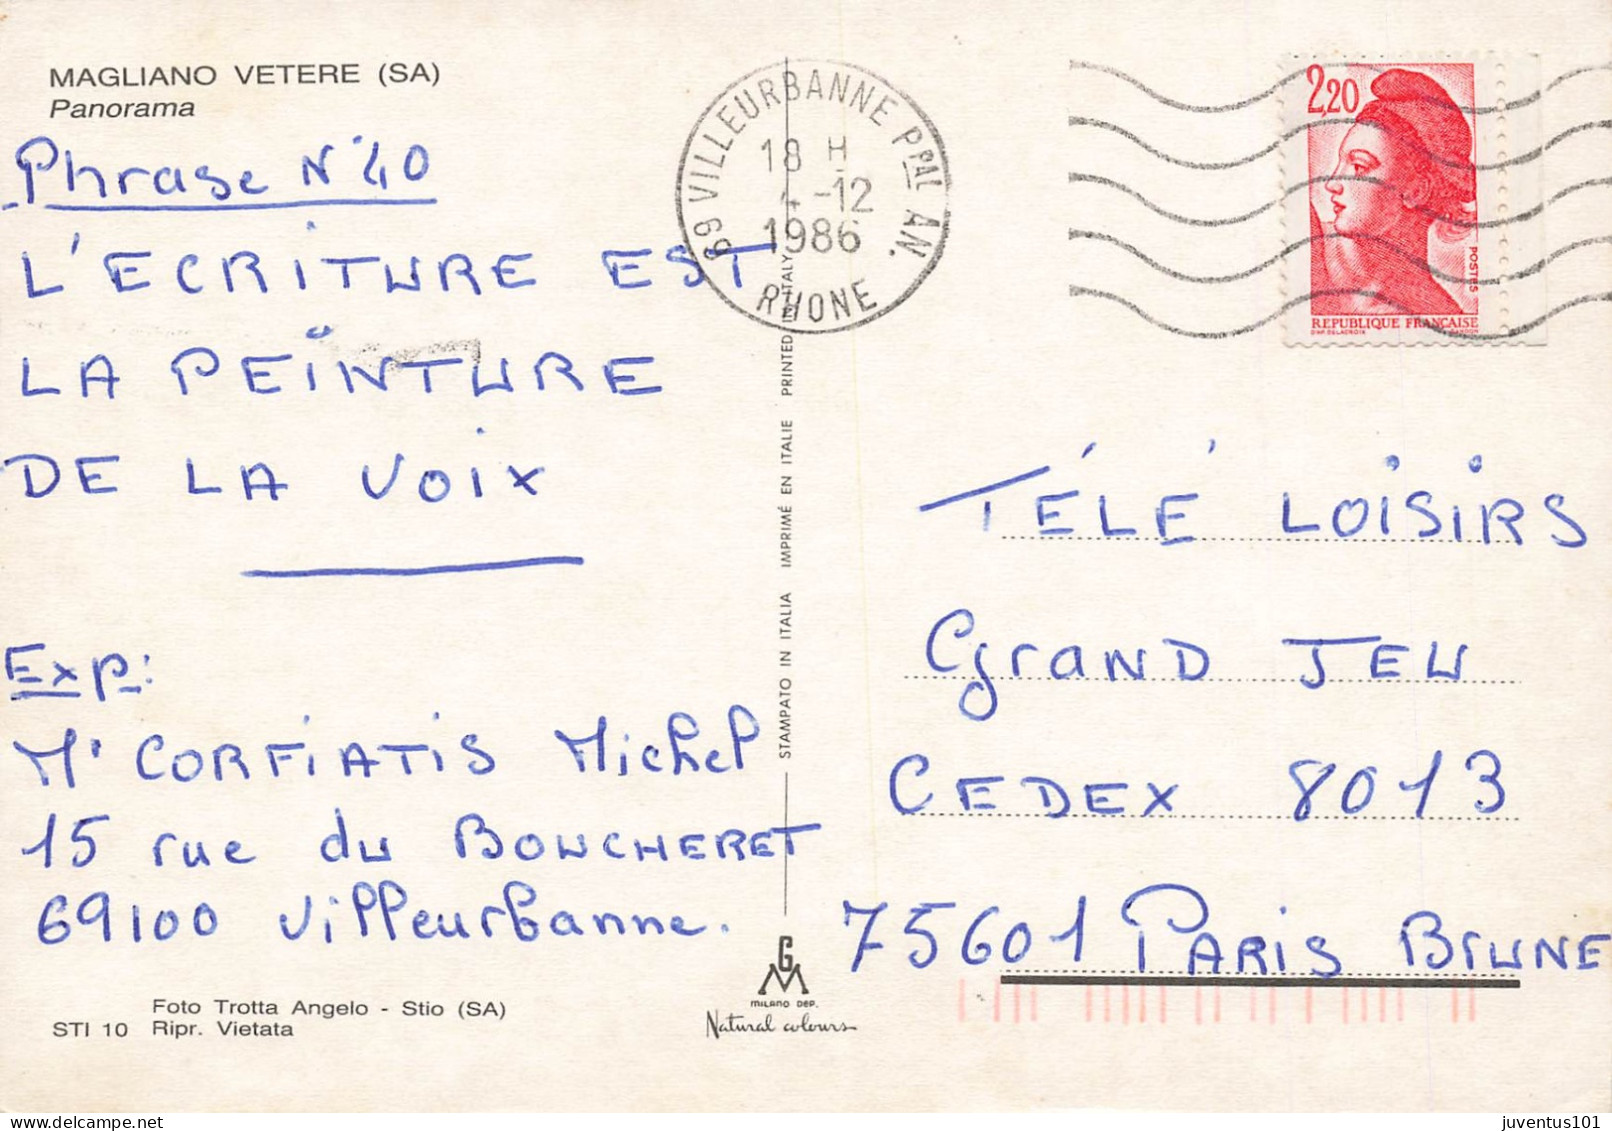 MAGLIANO VETERE (SA)
Panorama
Phrase N°40
L'ECRITURE EST
LA PEINTURE
DE LA VOIX
Exp:
Mr CORFIATIS Michel
15 rue du BOUCHERET
69100 Villeurbanne.
Foto Trotta Angelo - Stio (SA)
STI 10 Ripr. Vietata
69 VILLEURBANNE PPAL AN.
18 H
4-12
1986
RHONE
STAMPATO IN ITALIA IMPRIMÉ EN ITALIE PRINTED IN ITALY
GM
MILANO DEP.
Natural colours
2,20
POSTES
REPUBLIQUE FRANÇAISE
D'AP. DELACROIX GANDON
TÉLÉ LOISIRS
GRAND JEU
CEDEX 8013
75601 PARIS BRUNE
juventus101